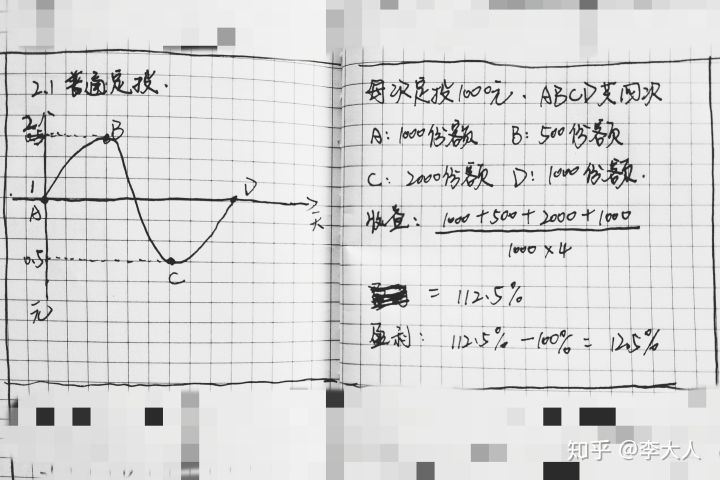 2.1 普通定投.
2
B
1
A
D
天
0.5
C
元
每次定投1000元. ABCD共四次
A: 1000份额 B: 500份额
C: 2000份额 D: 1000份额.
收益: 1000 + 500 + 2000 + 1000
1000 × 4
= 112.5%
盈利: 112.5% - 100% = 12.5%
知乎 @李大人